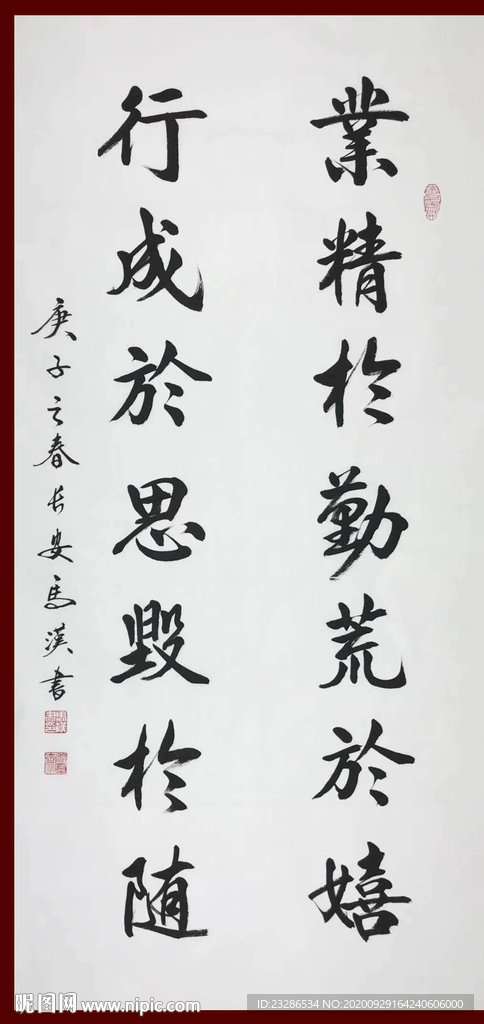 業精於勤荒於嬉
行成於思毀於随
庚子之春长安馬漢書
昵图网 www.nipic.com
ID:23286534 NO:20200929164240606000